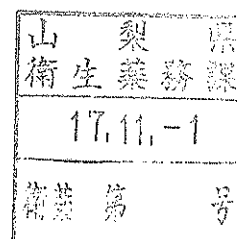 山梨県
衛生薬務課
17.11.-1
衛薬 第 号